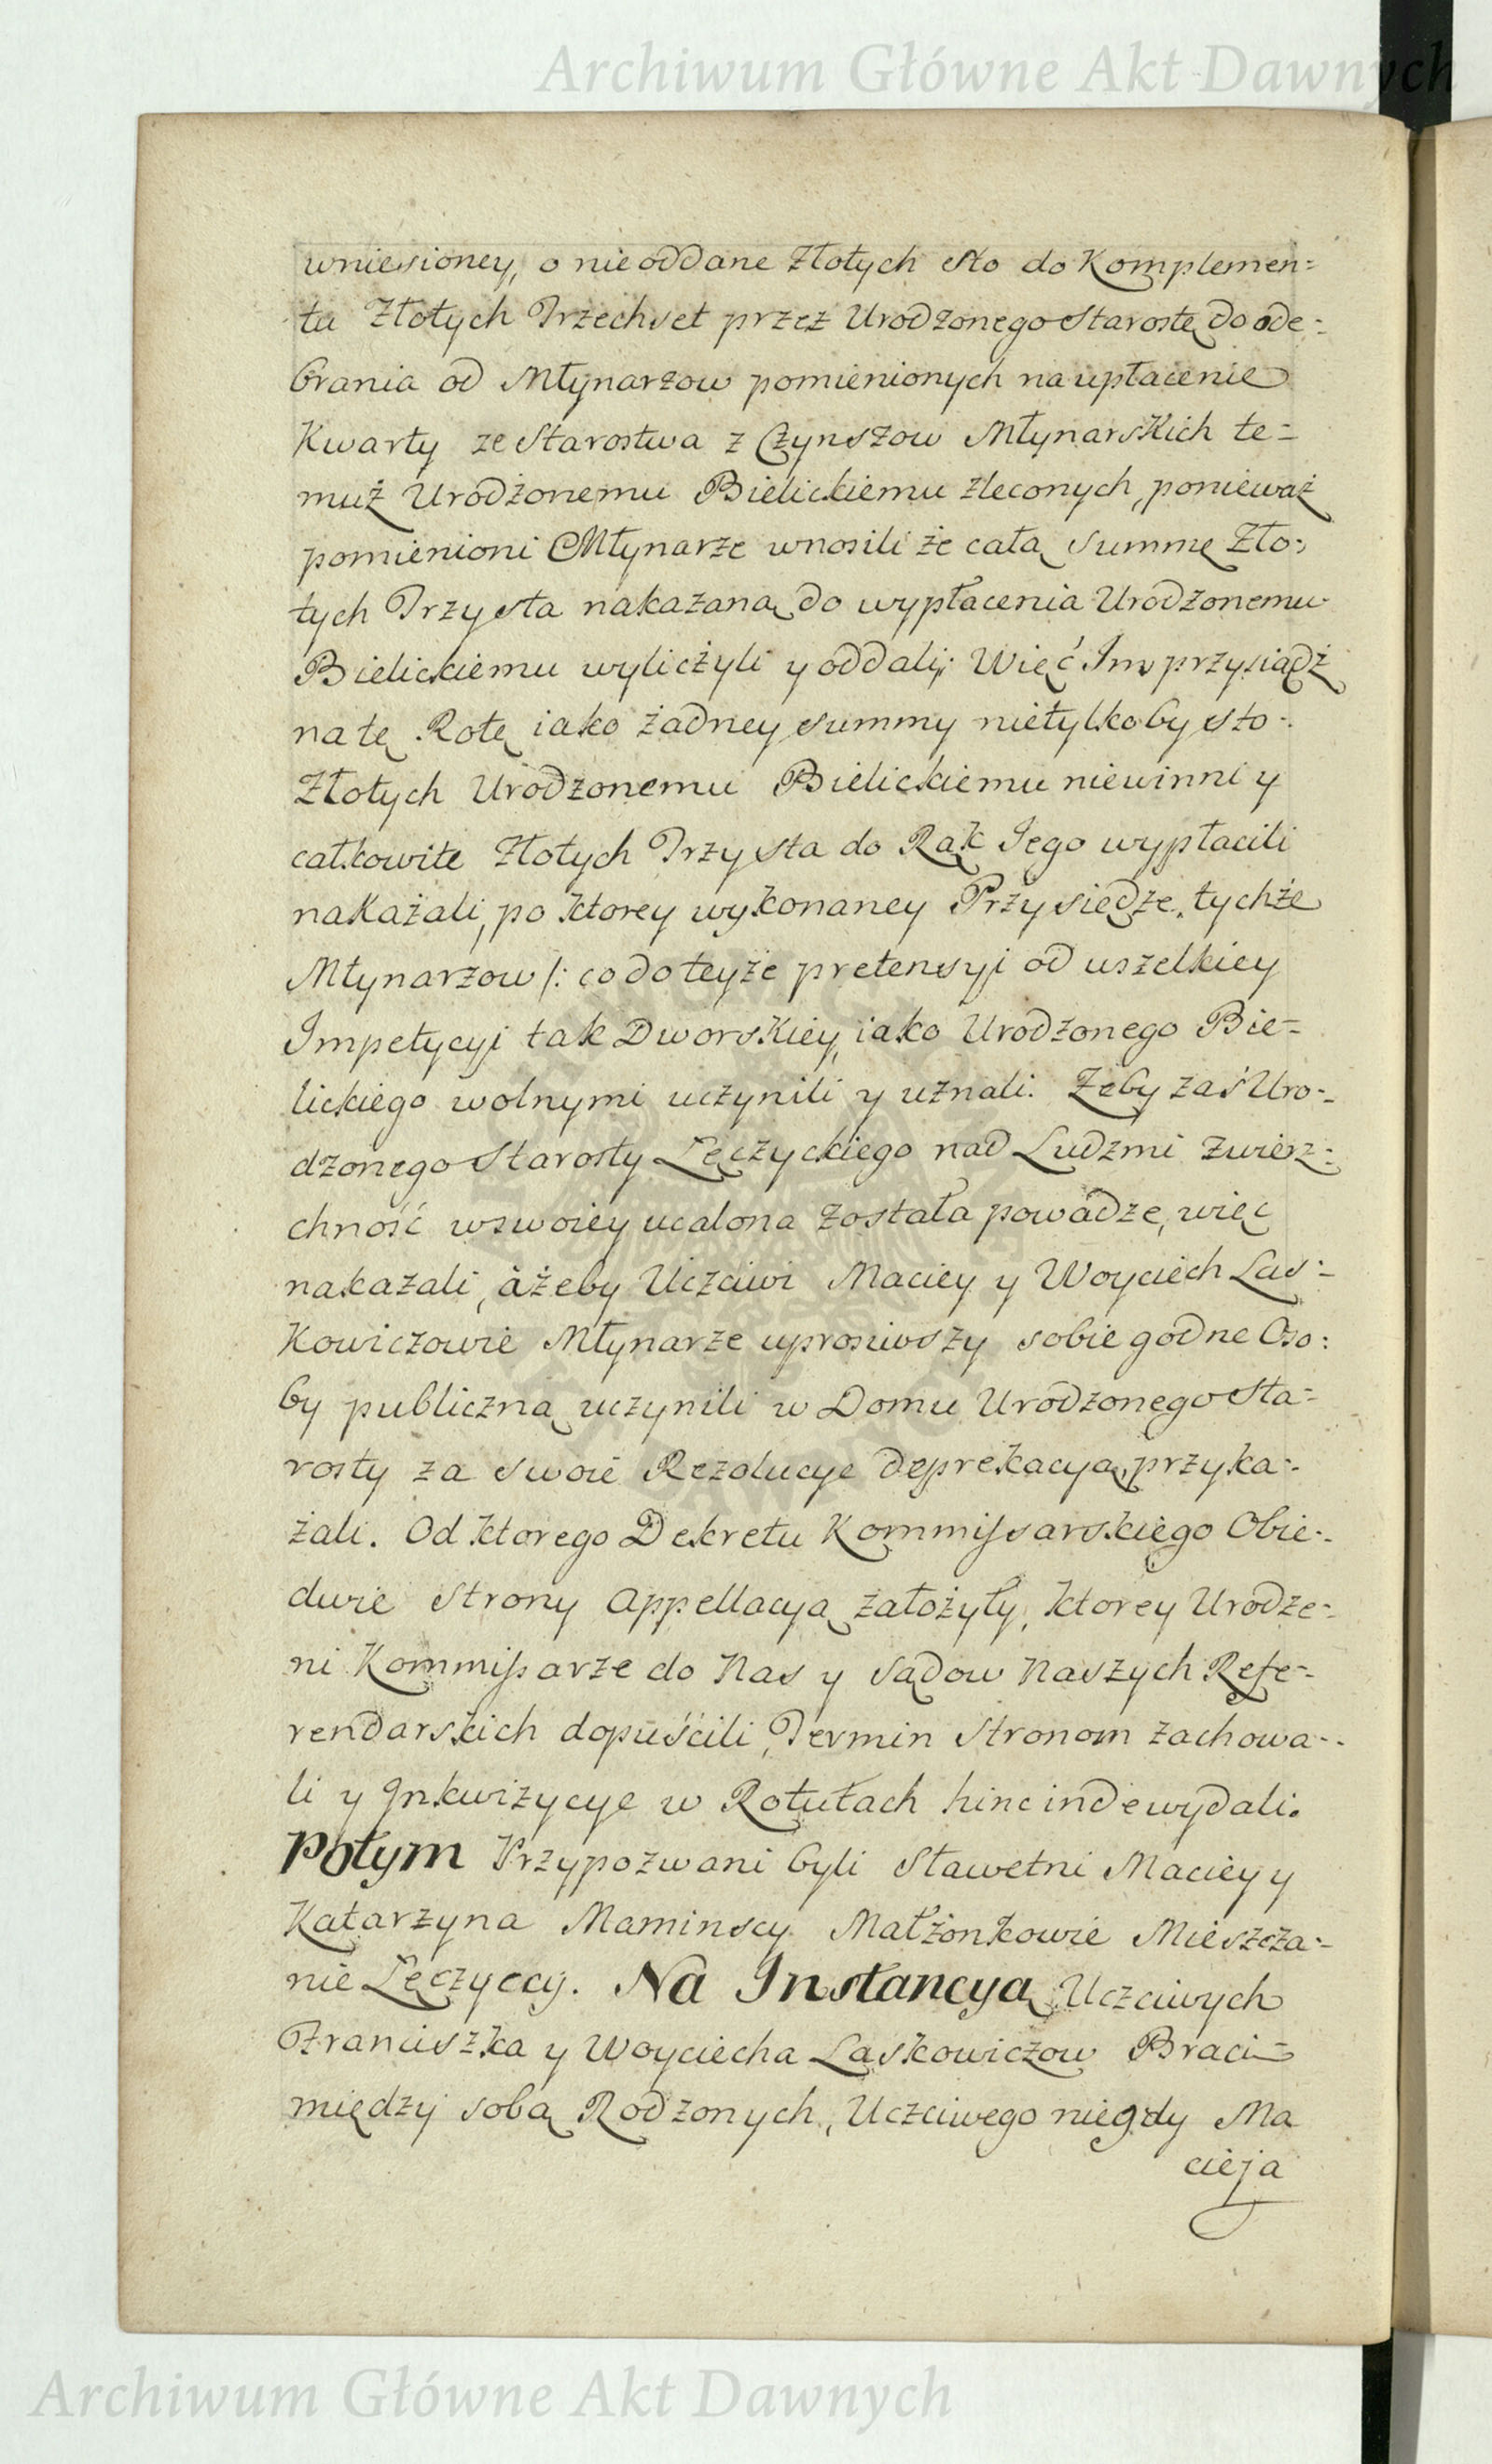 Archiwum Główne Akt Dawnych
wniesioney, o nieoddane Złotych sto do Komplemen=
tu Złotych Trzechset przez Urodzonego Starostę do ode=
brania od Młynarzow pomienionych na upłacenie
Kwarty ze Starostwa z Czynszow Młynarskich te=
muż Urodżonemu Bielickiemu zleconych, ponieważ
pomienioni Młynarze wnosili że całą Summę Zło=
tych Trzysta nakazaną do wypłacenia Urodzonemu
Bielickiemu wyliczyli y oddali; Więć Im przysiądź
na tę Rotę iako żadney summy nietylkoby sto
Złotych Urodzonemu Bielickiemu niewinni y
całkowite Złotych Trzysta do Rąk Jego wypłacili
nakażali, po ktorey wykonaney Przysiedze, tychże
Młynarzow /: co do teyże pretensyi od wszelkiey
Impetycyi tak Dworskiey, iako Urodzonego Bie=
lickiego wolnymi uczynili y uznali. Zeby zaś Uro=
dzonego Starosty Łęczyckiego nad Ludzmi zwierz=
chność w swoiey ucalona została powadze, więc
nakazali, ażeby Uczciwi Maciey y Woyciech Las=
Kowiczowie Młynarze uprosiwszy sobie godne Oso=
by publiczną uczynili w Domu Urodzonego Sta=
rosty za swoie Rezolucye deprekacyą, przyka=
żali. Od ktorego Dekretu Kommissarskiego Obie=
dwie Strony Appellacyą założyły, ktorey Urodze=
ni Kommissarze do Nas y Sądow Naszych Refe=
rendarskich dopuścili, Termin Stronom zachowa=
li y Inkwizycye w Rotułach hinc inde wydali.
Potym Przypozwani byli Sławetni Maciey y
Katarzyna Maminscy Małżonkowie Mieszcza=
nie Łęczyccy. Na Instancyą Uczciwych
Franciszka y Woyciecha Laskowiczow Braci=
między sobą Rodzonych, Uczciwego niegdy Ma
cieja
Archiwum Główne Akt Dawnych